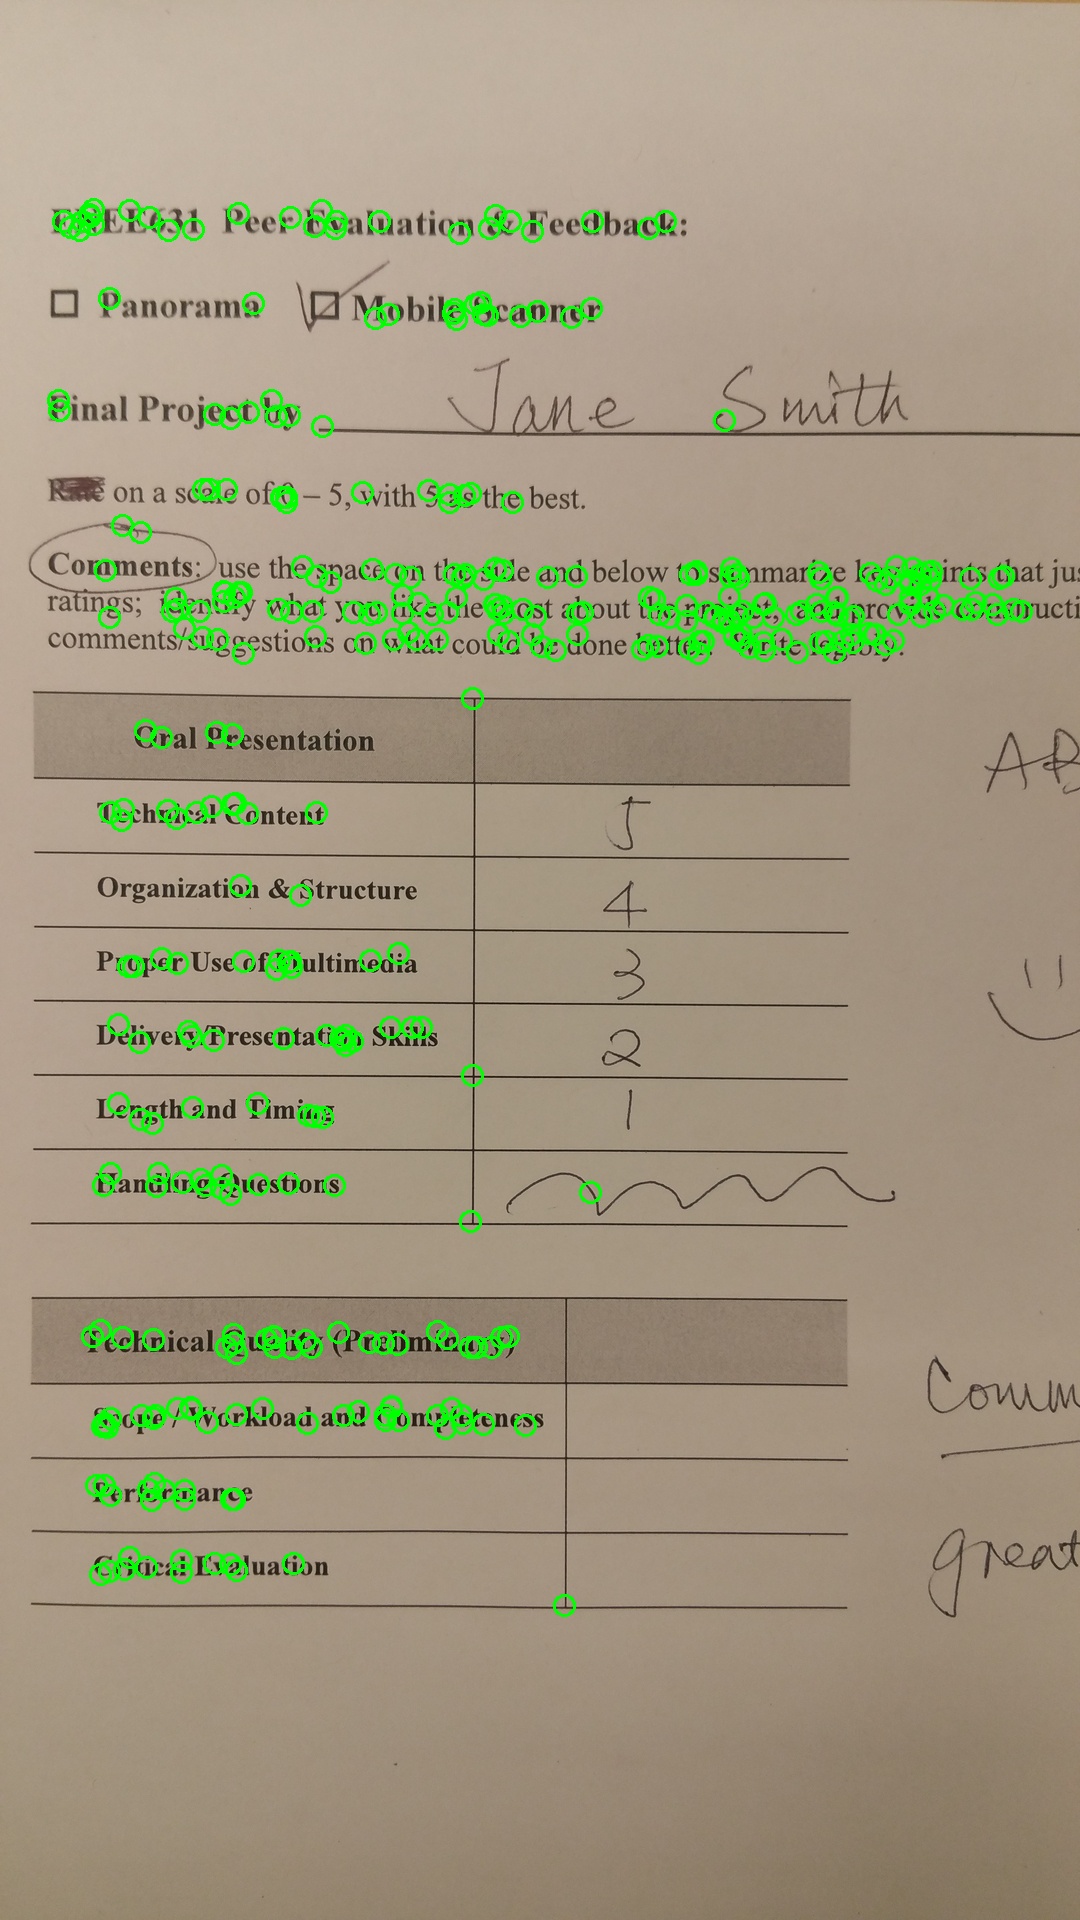 ENEE631 Peer Evaluation & Feedback:
Panorama Mobile Scanner
Final Project by Jane Smith
Rate on a scale of 0 – 5, with 5 as the best.
Comments: use the space on the side and below to summarize key points that jus
ratings; identify what you like the most about the project, and provide constructi
comments/suggestions on what could be done better. Write legibly.
Oral Presentation
AB
Technical Content 5
Organization & Structure 4
Proper Use of Multimedia 3
Delivery/Presentation Skills 2
Length and Timing 1
Handling Questions
Technical Quality (Preliminary)
Comm
Scope / Workload and Completeness
Performance
great
Critical Evaluation